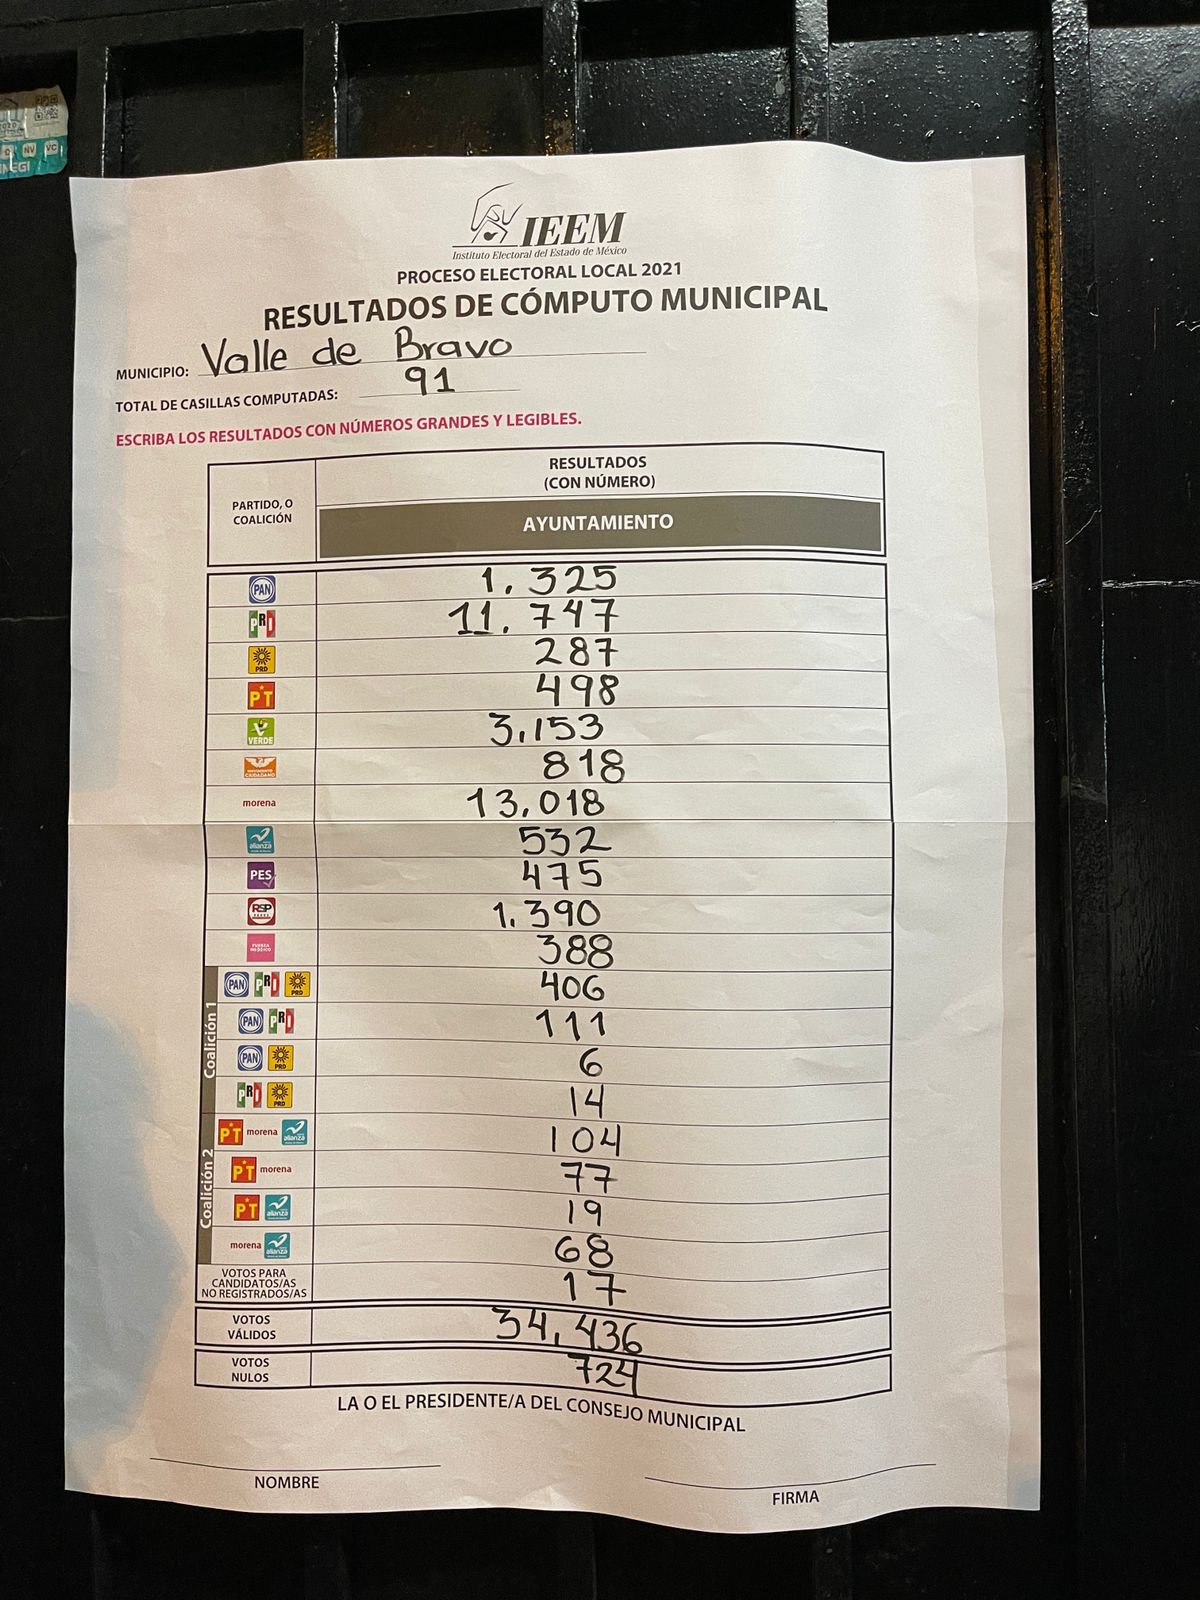 IEEM
Instituto Electoral del Estado de México
PROCESO ELECTORAL LOCAL 2021
RESULTADOS DE CÓMPUTO MUNICIPAL
MUNICIPIO: Valle de Bravo
TOTAL DE CASILLAS COMPUTADAS: 91
ESCRIBA LOS RESULTADOS CON NÚMEROS GRANDES Y LEGIBLES.
PARTIDO, O COALICIÓN
RESULTADOS
(CON NÚMERO)
AYUNTAMIENTO
PAN 1.325
PRI 11.747
PRD 287
PT 498
VERDE 3,153
MOVIMIENTO CIUDADANO 818
morena 13,018
alianza 532
PES 475
RSP 1.390
FUERZA MÉXICO 388
Coalición 1
PAN PRI PRD 406
PAN PRI 111
PAN PRD 6
PRI PRD 14
Coalición 2
PT morena alianza 104
PT morena 77
PT alianza 19
morena alianza 68
VOTOS PARA
CANDIDATOS/AS
NO REGISTRADOS/AS 17
VOTOS VÁLIDOS 34,436
VOTOS NULOS 724
LA O EL PRESIDENTE/A DEL CONSEJO MUNICIPAL
NOMBRE
FIRMA
2020
NV VC
INEGI